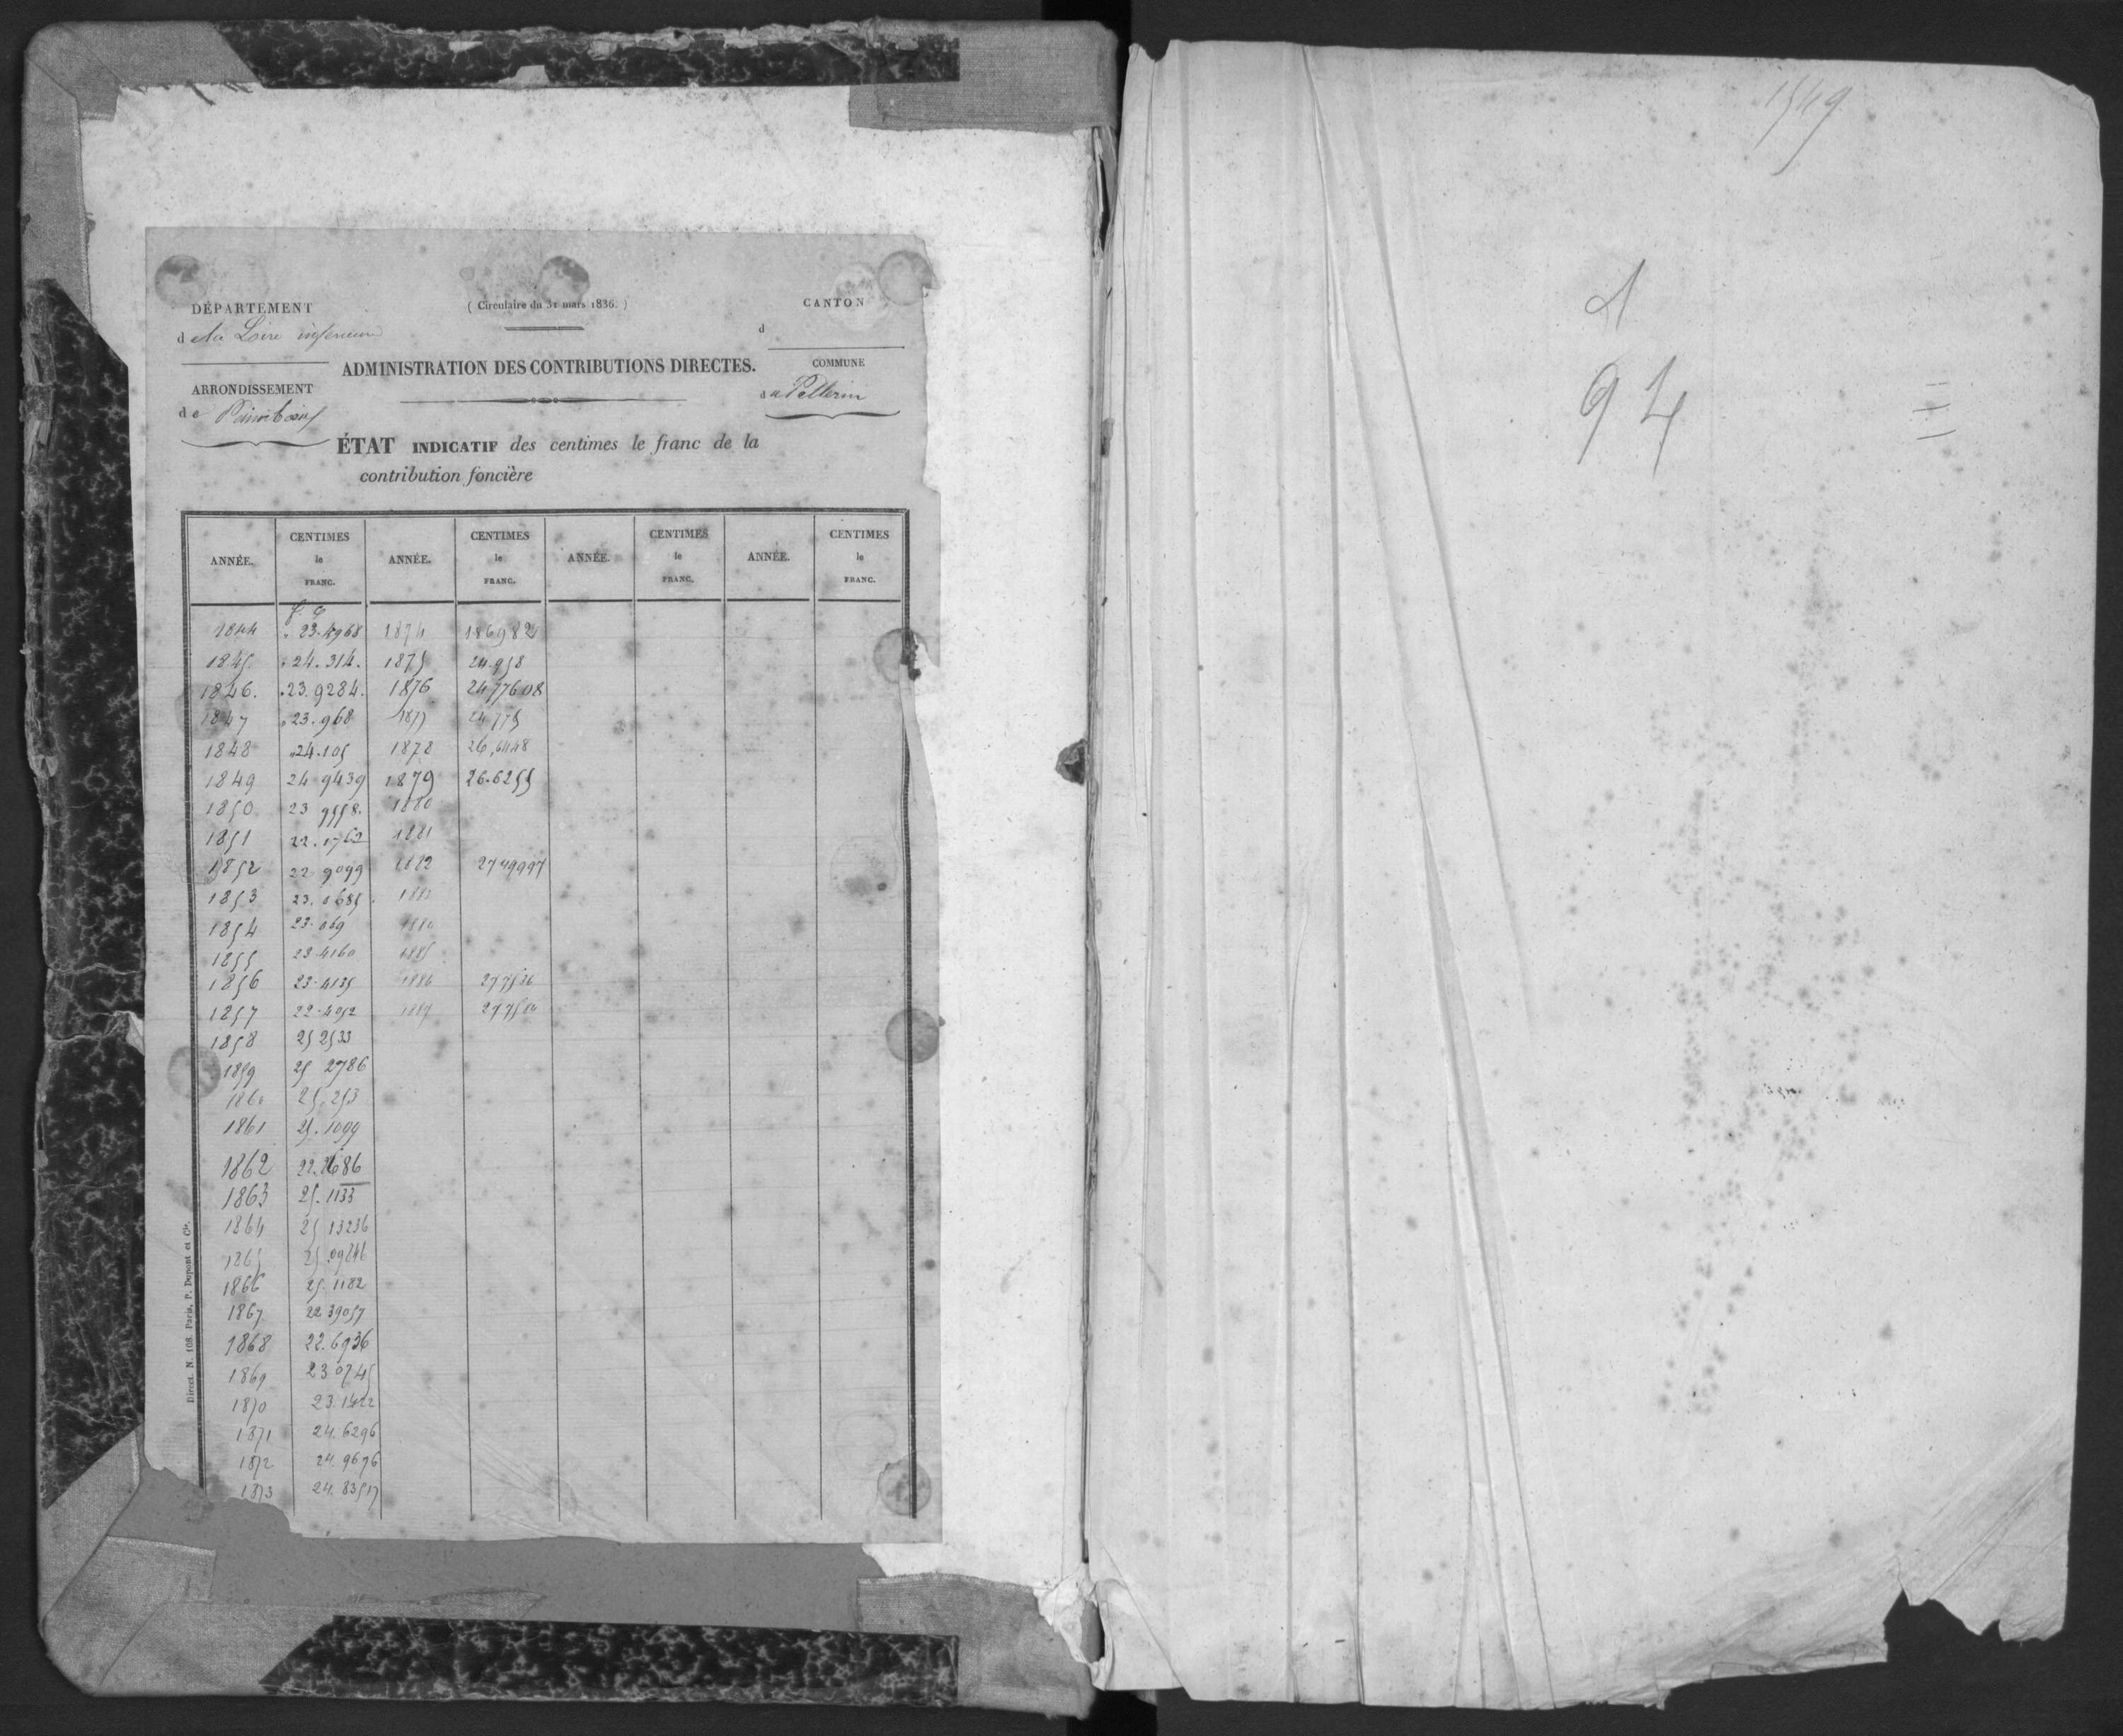 DÉPARTEMENT
de la Loire inférieure
ARRONDISSEMENT
de Paimboeuf
( Circulaire du 31 mars 1836. )
ADMINISTRATION DES CONTRIBUTIONS DIRECTES.
CANTON
d
COMMUNE
du Pellerin
ÉTAT INDICATIF des centimes le franc de la
contribution foncière
ANNÉE. CENTIMES le FRANC. ANNÉE. CENTIMES le FRANC. ANNÉE. CENTIMES le FRANC. ANNÉE. CENTIMES le FRANC.
f. c
1844 23.4968 1874 186982
1845 24.314. 1875 24.958
1846. 23.9284. 1876 2477608
1847 23.968 1877 24 775
1848 24.105 1878 26,6448
1849 24 9439 1879 26.6255
1850 23 9558. 1880
1851 22.1762 1881
1852 22 9099 1882 2749997
1853 23.0685
1854 23.069
1855 23.4160 1885
1856 23.4135 1886 277536
1857 22.4952 1887
1858 25 2533
1859 25 2786
1860 25.253
1861 25.1099
1862 22.2686
1863 25.1133
1864 25 13236
1865
1866 25.1182
1867 22 39057
1868 22.6936
1869 23 0745
1870 23.1422
1871 24.6296
1872 24.9676
1873 24.83517
Direct. N. 108. Paris, P. Dupont et Cie.
1549
94